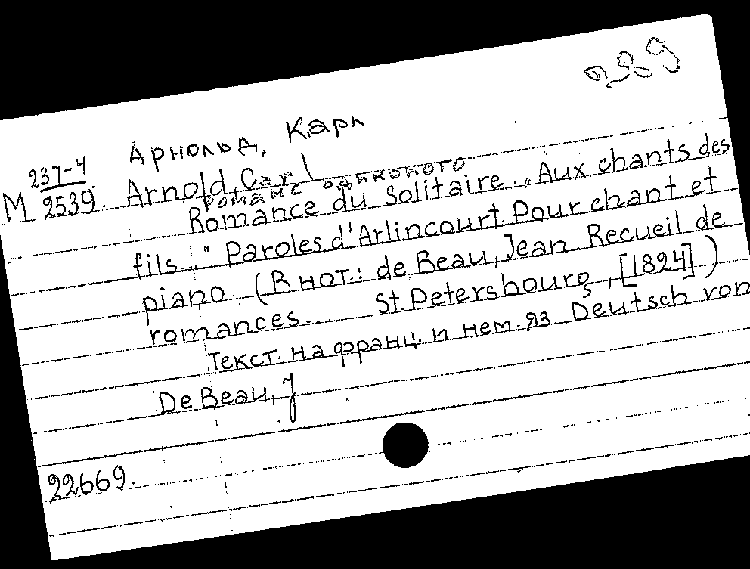 989
Арнольд, Карл
М 237-4 Arnold, Carl
2539 Романс одинокого
Romance du Solitaire. „Aux chants des
fils..." Paroles d'Arlincourt Pour chant et
piano (В нот.: de Beau, Jean Recueil de
romances. St. Petersbourg, [1824])
Текст на франц и нем. яз Deutsch von
De Beau, J
22669.